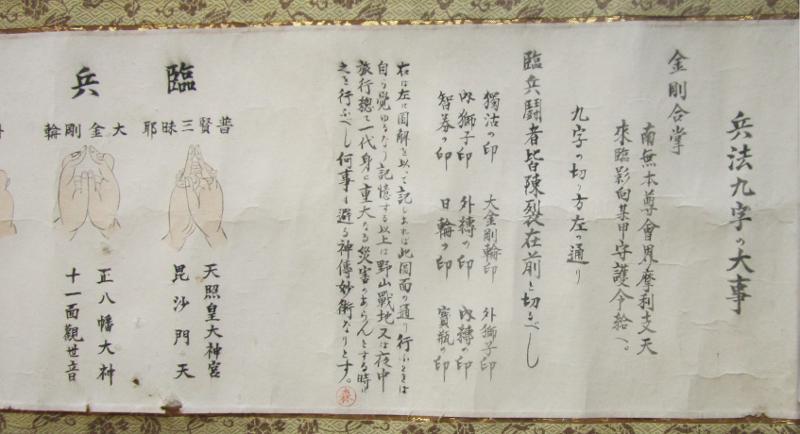 兵法九字の大事
金剛合掌
南無本尊會界摩利支天
来臨影向某甲守護令給へ。
九字の切り方左の通り
臨兵鬪者皆陳裂在前と切るべし
獨沽の印 大金剛輪印 外獅子印
内獅子印 外縛の印 内縛の印
智拳の印 日輪の印 寳瓶の印
右は左に図解を以って記しあれば此図面の通り行ふときは
自り覺ゆるなり記憶する以上は野山戰地又は夜中
旅行總て一代身に重大なる災害のあらんとする時は
之を行ふべし何事も避る神傳妙術なりとす。
臨
普賢三昧耶
天照皇大神宮
毘沙門天
兵
大金剛輪
正八幡大神
十一面觀世音